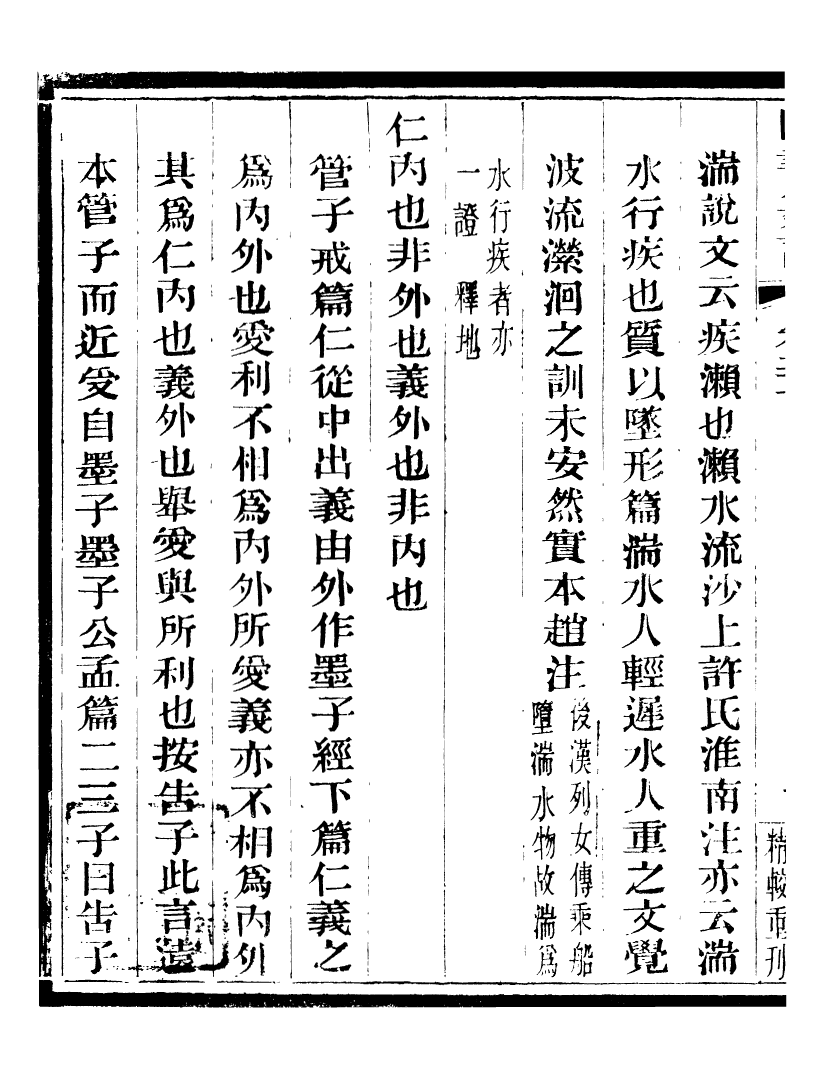 精較重刊
湍說文云疾瀨也瀨水流沙上許氏淮南注亦云湍
水行疾也質以墬形篇湍水人輕遲水人重之文覺
波流瀠洄之訓未安然實本趙注
後漢列女傳乘船
墮湍水物故湍爲
水行疾者亦
一證 釋地
仁內也非外也義外也非內也
管子戒篇仁從中出義由外作墨子經下篇仁義之
爲內外也愛利不相爲內外所愛義亦不相爲內外
其爲仁內也義外也舉愛與所利也按告子此言遠
本管子而近受自墨子墨子公孟篇二三子曰告子